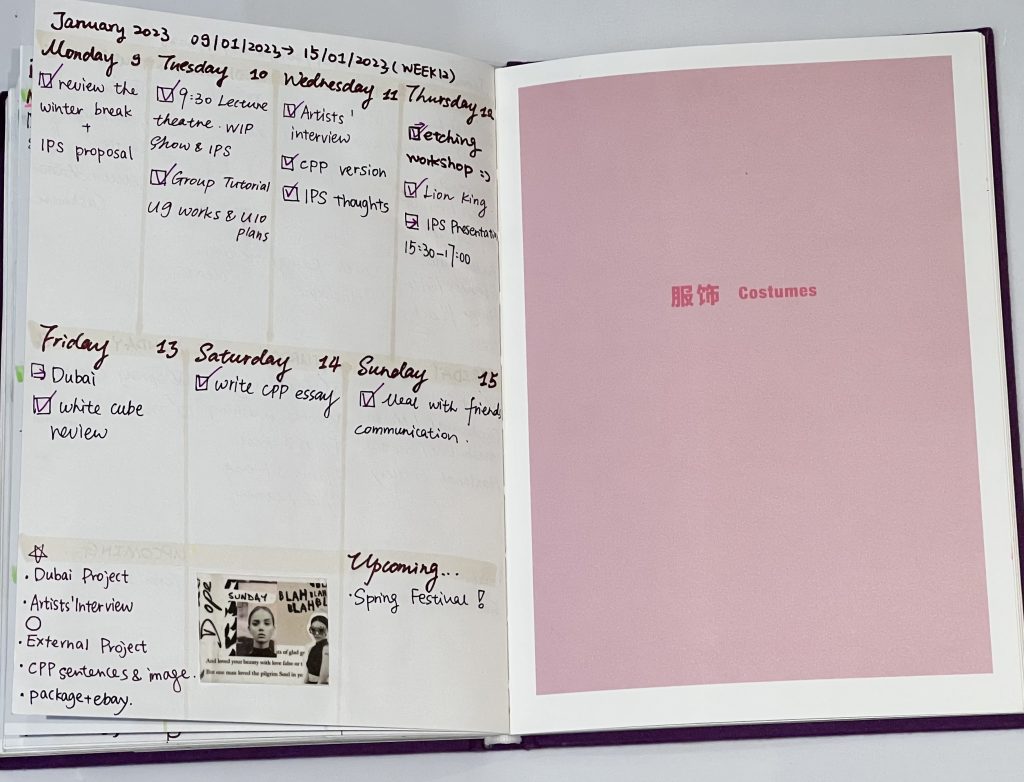 January 2023 09/01/2023→ 15/01/2023 (WEEK12)
Monday 9
review the
winter break
+
IPS proposal
Tuesday 10
9:30 Lecture
theatre. WIP
Show & IPS
Group Tutorial
U9 works & U10
plans
Wednesday 11
Artists'
interview
CPP version
IPS thoughts
Thursday 12
etching
workshop =)
Lion King
IPS Presentati
15:30-17:00
Friday 13
Dubai
white cube
review
Saturday 14
write CPP essay
Sunday 15
Meal with friends
communication.
☆
· Dubai Project
· Artists' Interview
○
· External Project
· CPP sentences & image.
· package+ebay.
Dope
SUNDAY
BLAH BLAH
BLAHBL
ts of glad gr
And loved your beauty with love false or t
But one man loved the pilgrim Soul in yo
Upcoming...
· Spring Festival!
服饰 Costumes